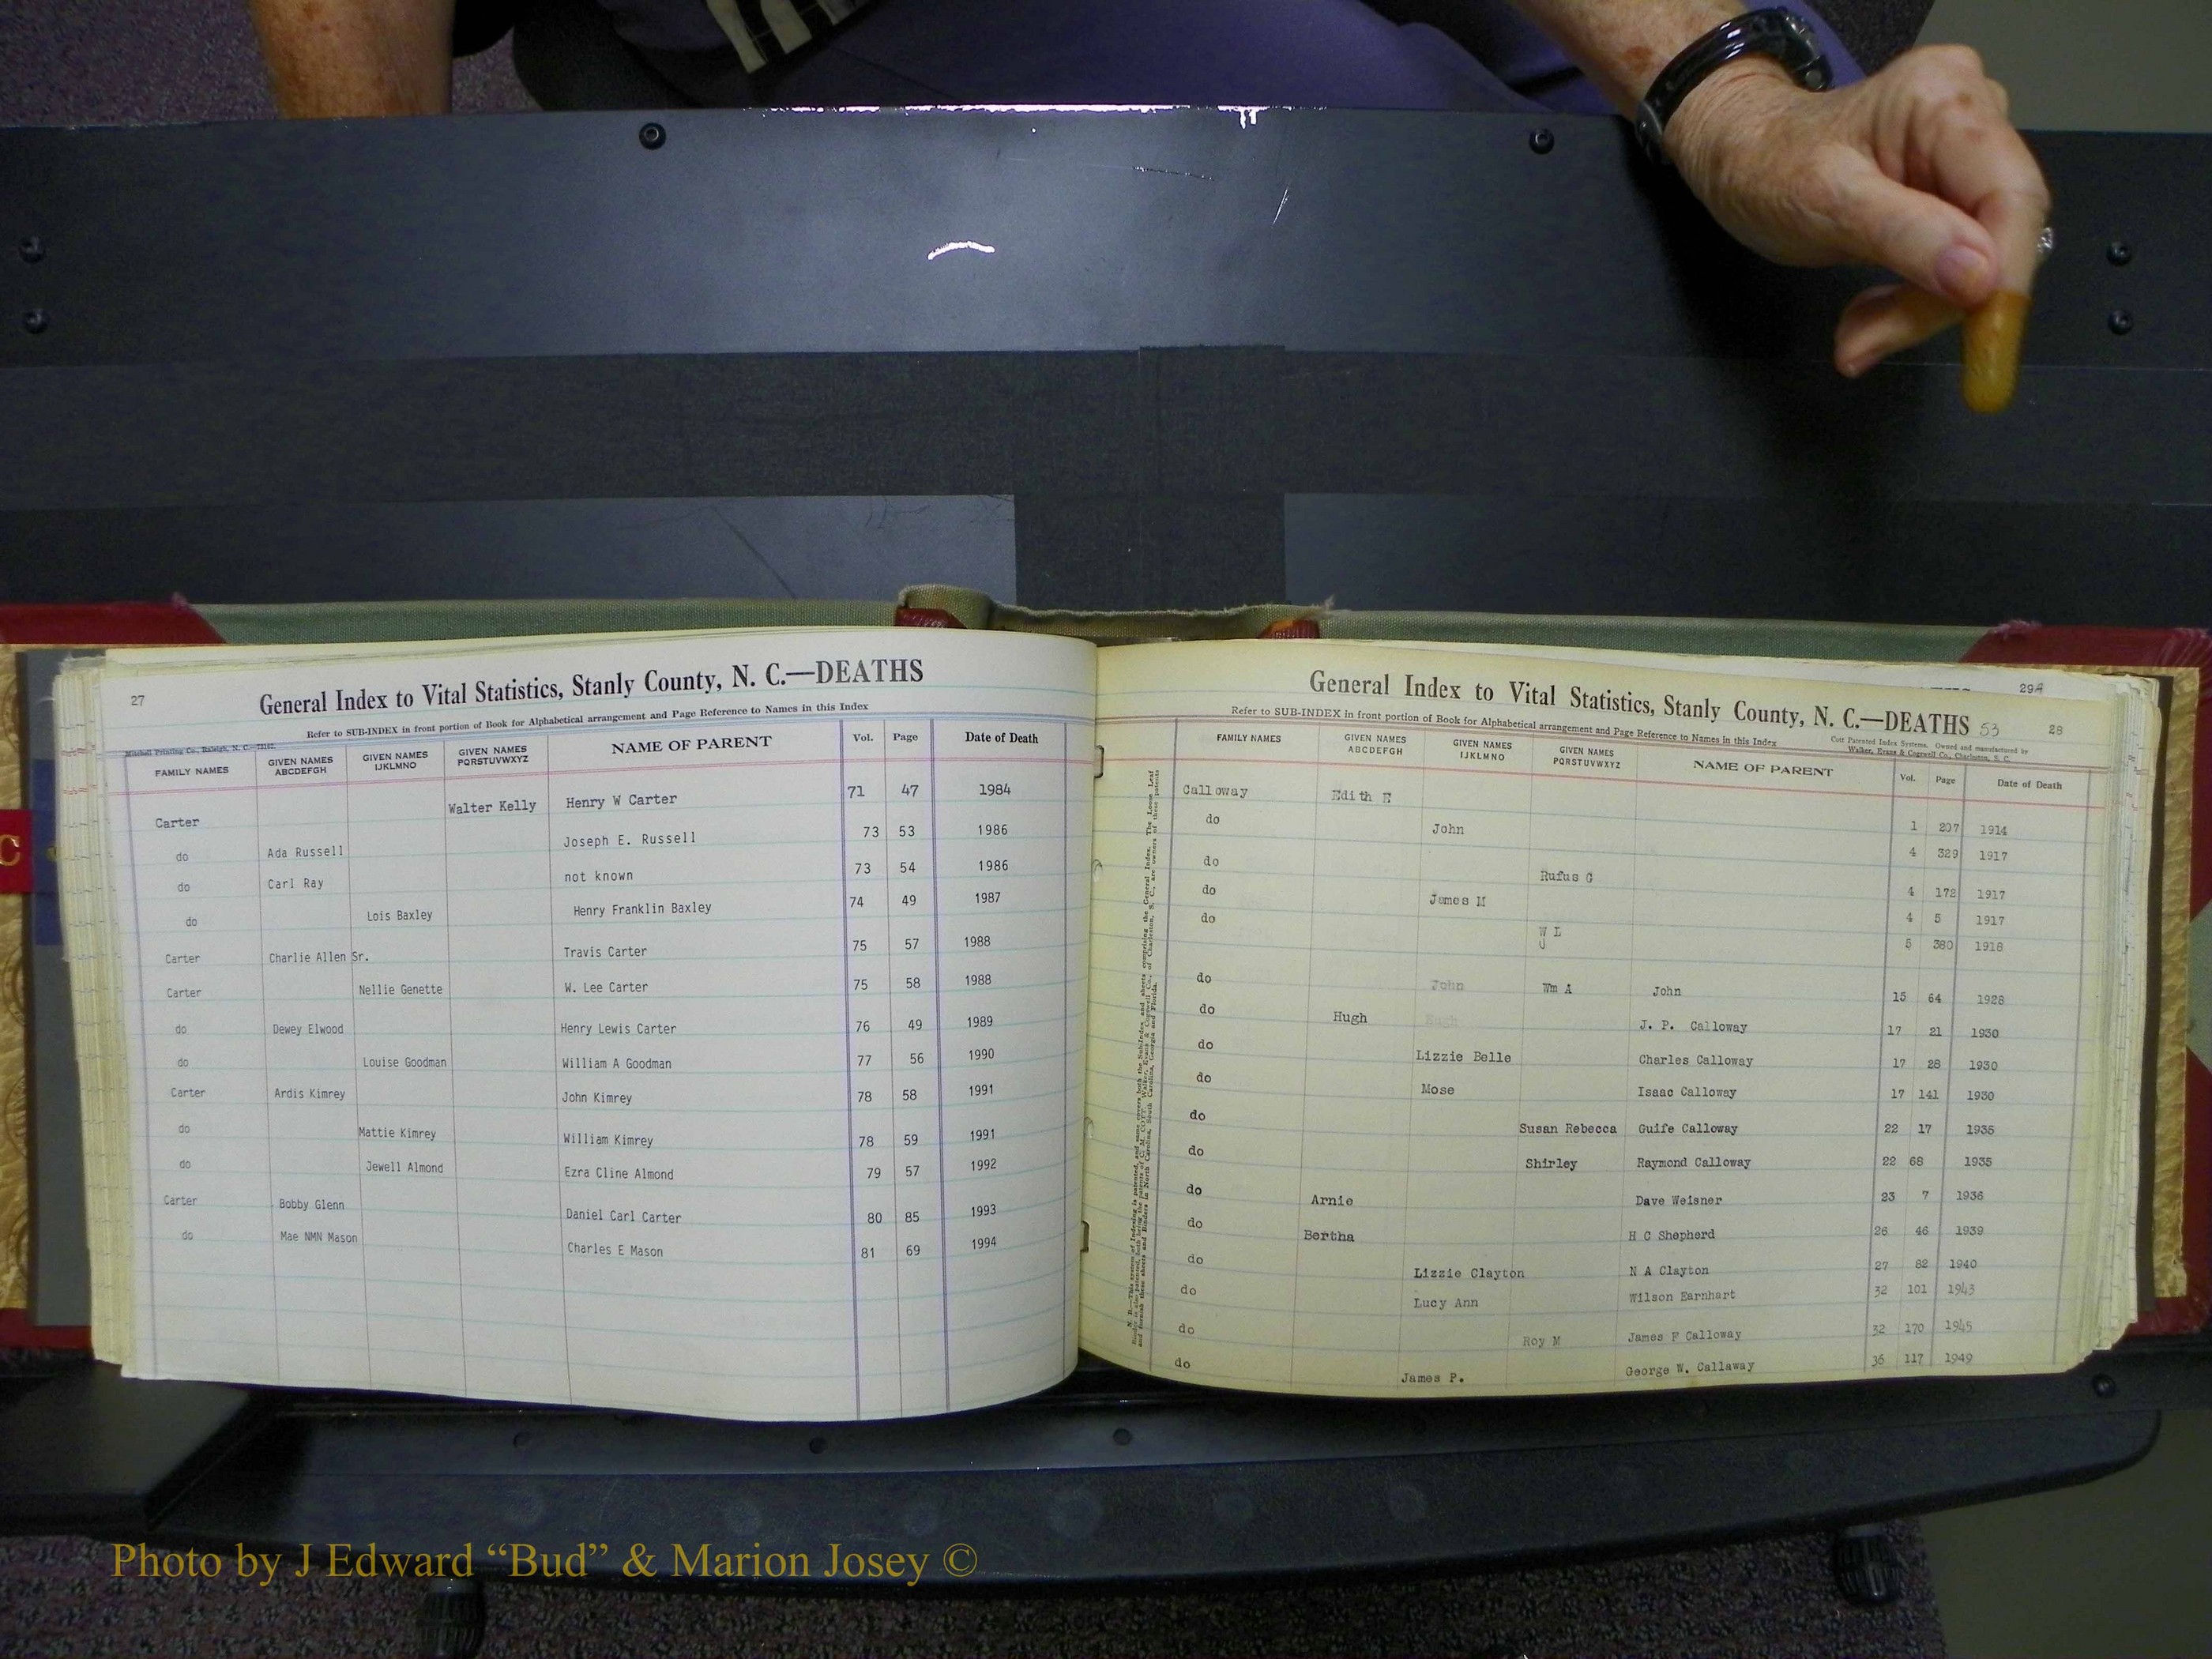 27
General Index to Vital Statistics, Stanly County, N. C.—DEATHS
Refer to SUB-INDEX in front portion of Book for Alphabetical arrangement and Page Reference to Names in this Index
Mitchell Printing Co., Raleigh, N. C.
FAMILY NAMES GIVEN NAMES ABCDEFGH GIVEN NAMES IJKLMNO GIVEN NAMES PQRSTUVWXYZ NAME OF PARENT Vol. Page Date of Death
Carter Walter Kelly Henry W Carter 71 47 1984
do Ada Russell Joseph E. Russell 73 53 1986
do Carl Ray not known 73 54 1986
do Lois Baxley Henry Franklin Baxley 74 49 1987
Carter Charlie Allen Sr. Travis Carter 75 57 1988
Carter Nellie Genette W. Lee Carter 75 58 1988
do Dewey Elwood Henry Lewis Carter 76 49 1989
do Louise Goodman William A Goodman 77 56 1990
Carter Ardis Kimrey John Kimrey 78 58 1991
do Mattie Kimrey William Kimrey 78 59 1991
do Jewell Almond Ezra Cline Almond 79 57 1992
Carter Bobby Glenn Daniel Carl Carter 80 85 1993
do Mae NMN Mason Charles E Mason 81 69 1994
29A
General Index to Vital Statistics, Stanly County, N. C.—DEATHS 53 28
Refer to SUB-INDEX in front portion of Book for Alphabetical arrangement and Page Reference to Names in this Index
Cott Patented Index Systems. Owned and manufactured by
Walker, Evans & Cogswell Co., Charleston, S. C.
FAMILY NAMES GIVEN NAMES ABCDEFGH GIVEN NAMES IJKLMNO GIVEN NAMES PQRSTUVWXYZ NAME OF PARENT Vol. Page Date of Death
Calloway Edith E 1 207 1914
do John 4 329 1917
do Rufus G 4 172 1917
do James M 4 5 1917
do W L 5 380 1918
J
do John Wm A John 15 64 1928
do Hugh J. P. Calloway 17 21 1930
do Lizzie Belle Charles Calloway 17 28 1930
do Mose Isaac Calloway 17 141 1930
do Susan Rebecca Guife Calloway 22 17 1935
do Shirley Raymond Calloway 22 68 1935
do Arnie Dave Weisner 23 7 1936
do Bertha H C Shepherd 26 46 1939
do Lizzie Clayton N A Clayton 27 82 1940
do Lucy Ann Wilson Earnhart 32 101 1945
do Roy M James F Calloway 32 170 1945
do James P. George W. Callaway 36 117 1949
C
Photo by J Edward “Bud” & Marion Josey ©